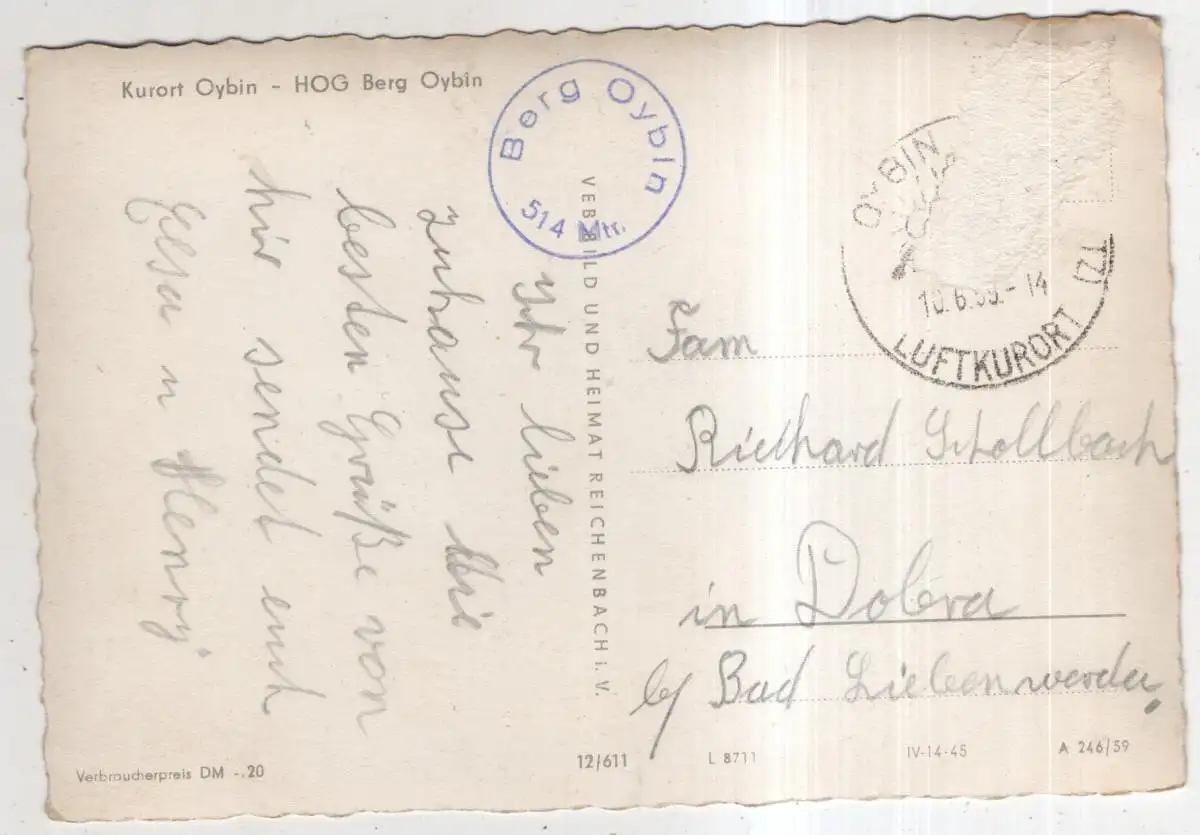 Kurort Oybin - HOG Berg Oybin
Berg Oybin
514 Mtr.
OYBIN
LUFTKURORT
Ihr lieben
zuhause die
besten Grüße von
hir sendet euch
Elsa u Henry
VEB BILD UND HEIMAT REICHENBACH i. V.
Fam
Richard Schollbach
in Dobra
b/ Bad Liebenwerda
Verbraucherpreis DM -.20
12/611
L 8711
IV-14-45
A 246/59